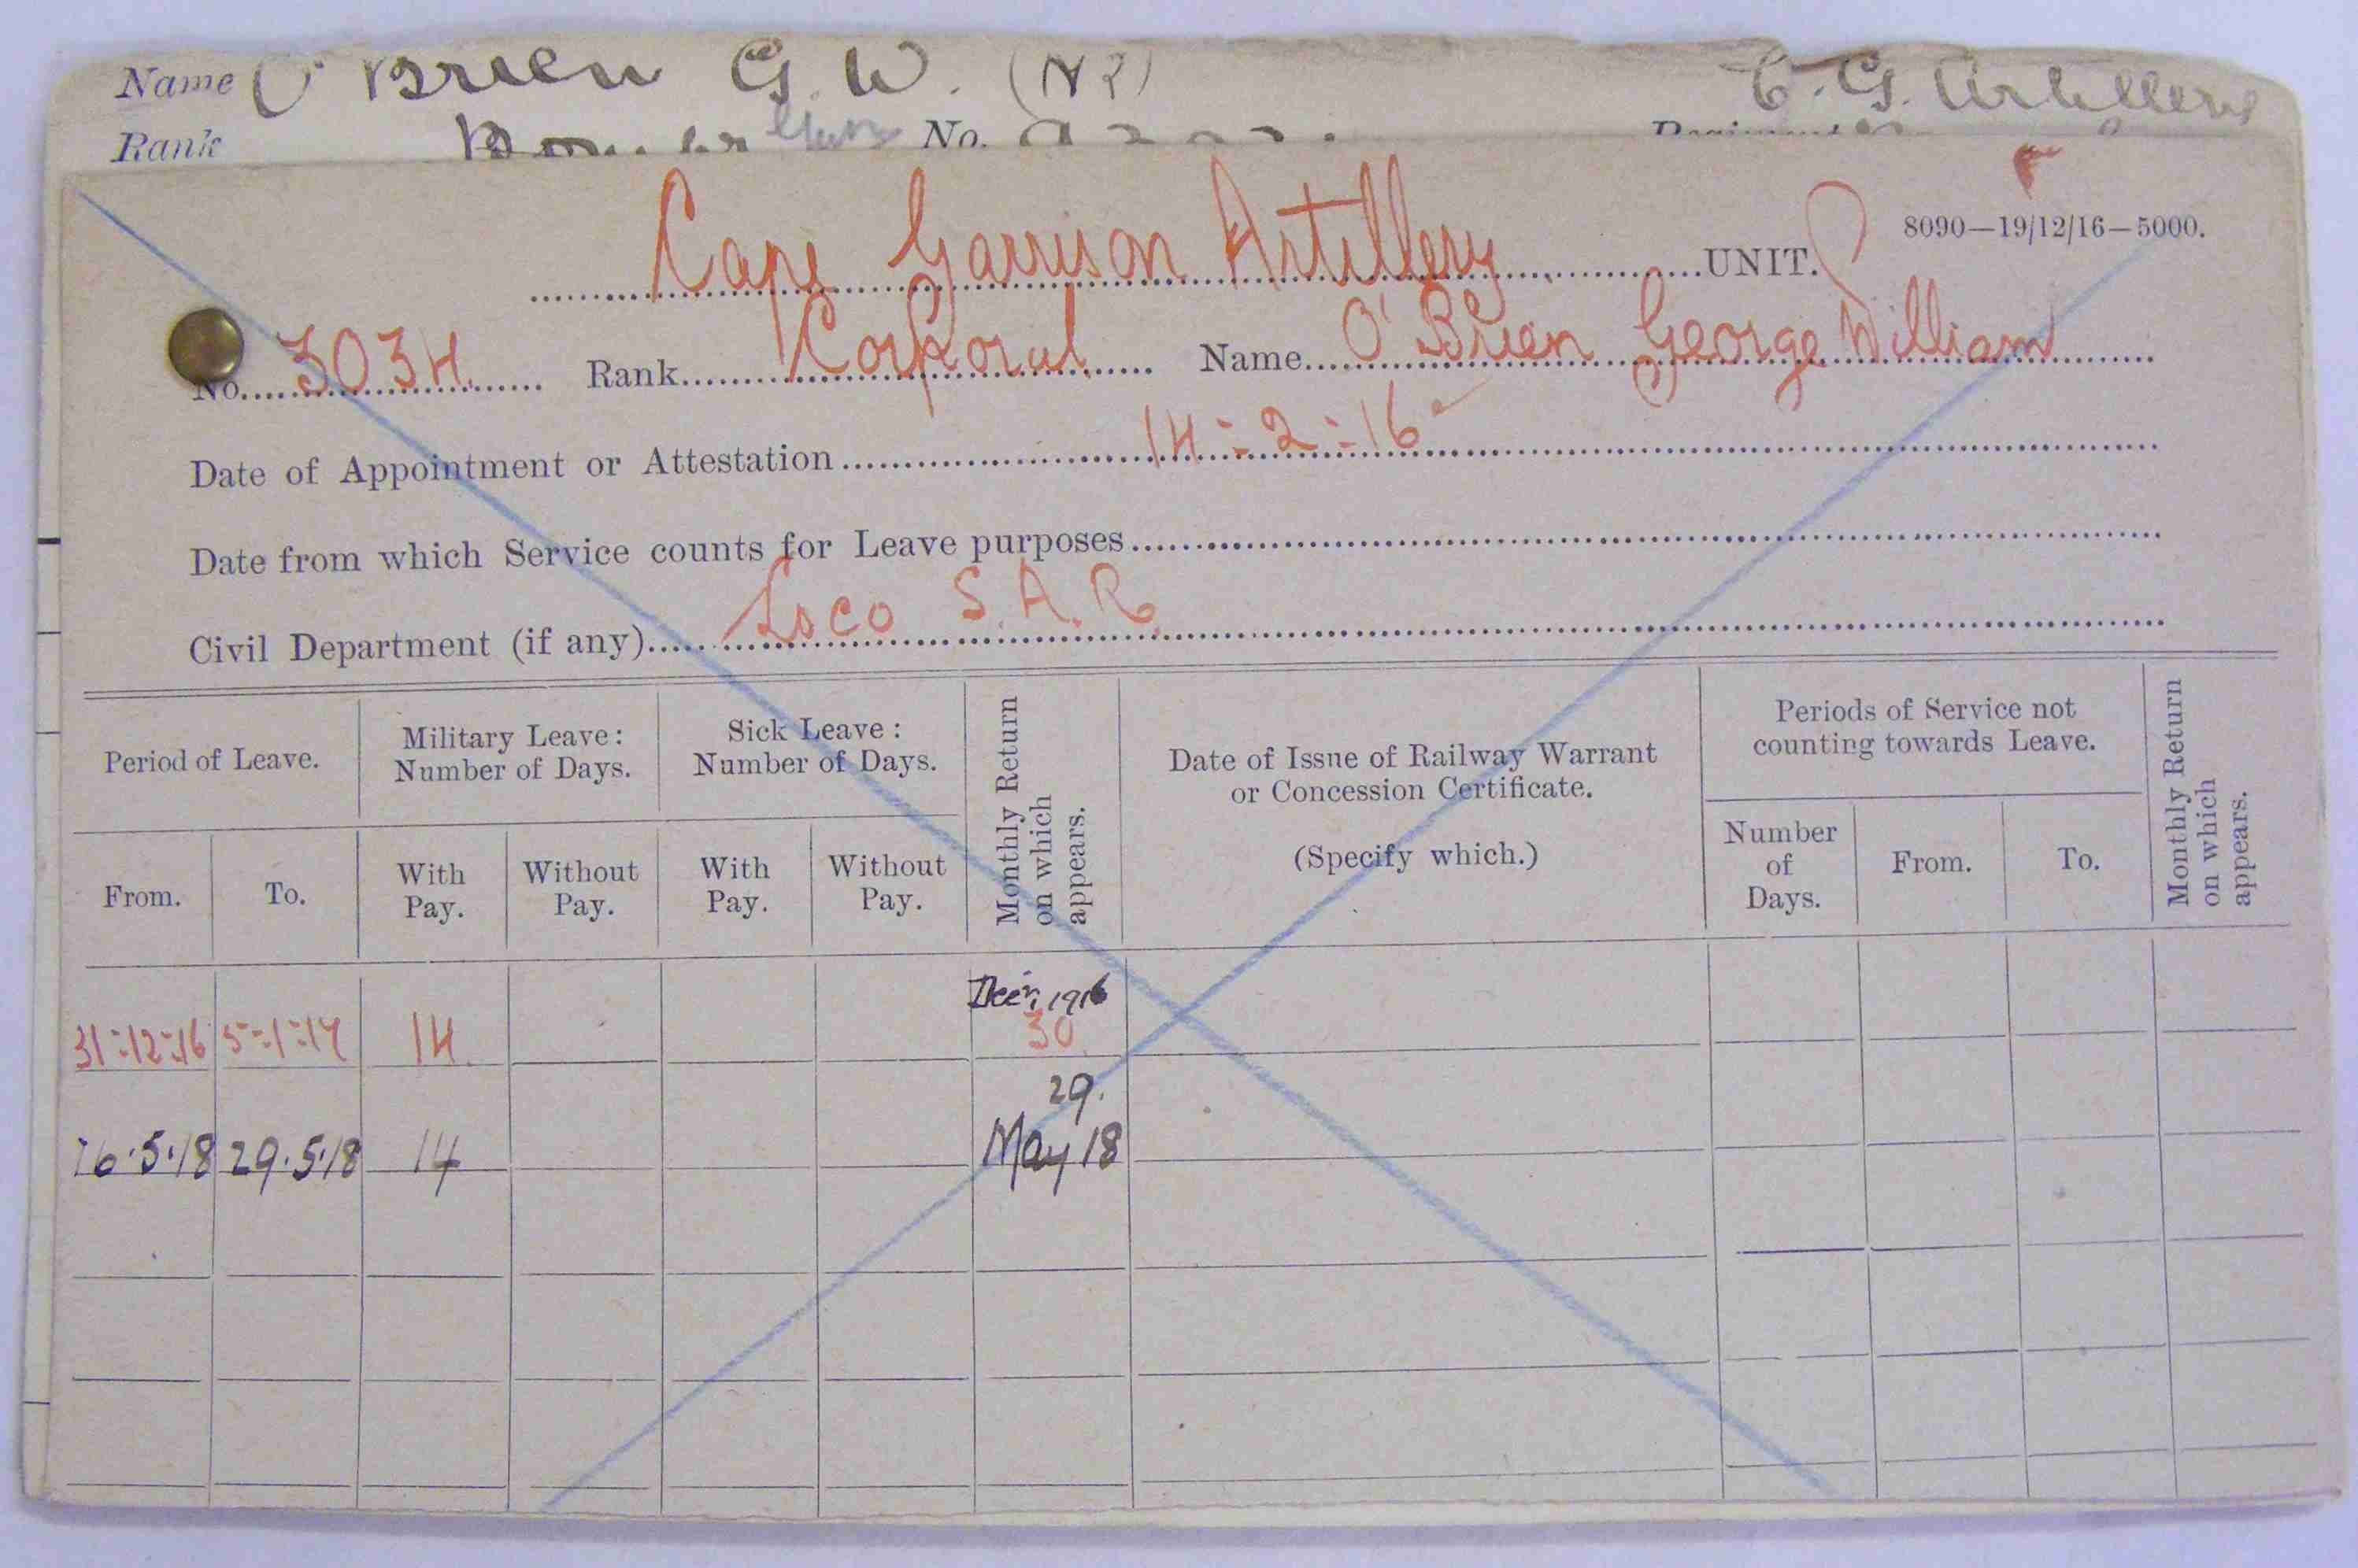 Name O'Brien G. W. (N2) C. G. Artillery
Rank No.
Cape Garrison Artillery UNIT. 8090—19/12/16—5000.
No. 3034 Rank Corporal Name O'Brien George William
Date of Appointment or Attestation 14-2-16
Date from which Service counts for Leave purposes
Civil Department (if any) Loco S.A.R.
Period of Leave.
Military Leave:
Number of Days.
Sick Leave:
Number of Days.
Monthly Return
on which
appears.
Date of Issue of Railway Warrant
or Concession Certificate.
(Specify which.)
Periods of Service not
counting towards Leave.
Monthly Return
on which
appears.
From. To.
With
Pay.
Without
Pay.
With
Pay.
Without
Pay.
Number
of
Days.
From. To.
Decr, 1916
31-12-16 5-1-17 14 30
29.
16.5.18 29.5.18 14 May 18